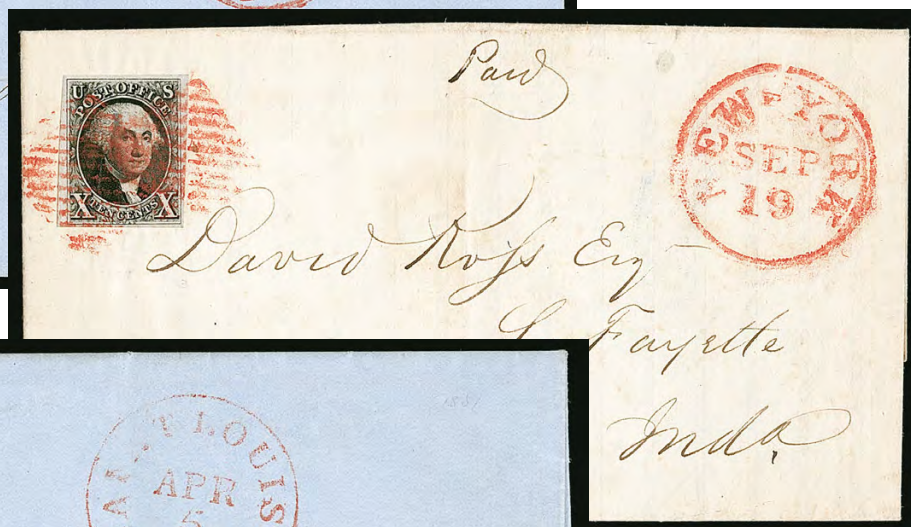 Paid
U S
POST OFFICE
X TEN CENTS X
NEW-YORK
SEP
19
David Ross Esq
La Fayette
Inda.
1851
ST LOUIS
APR
5